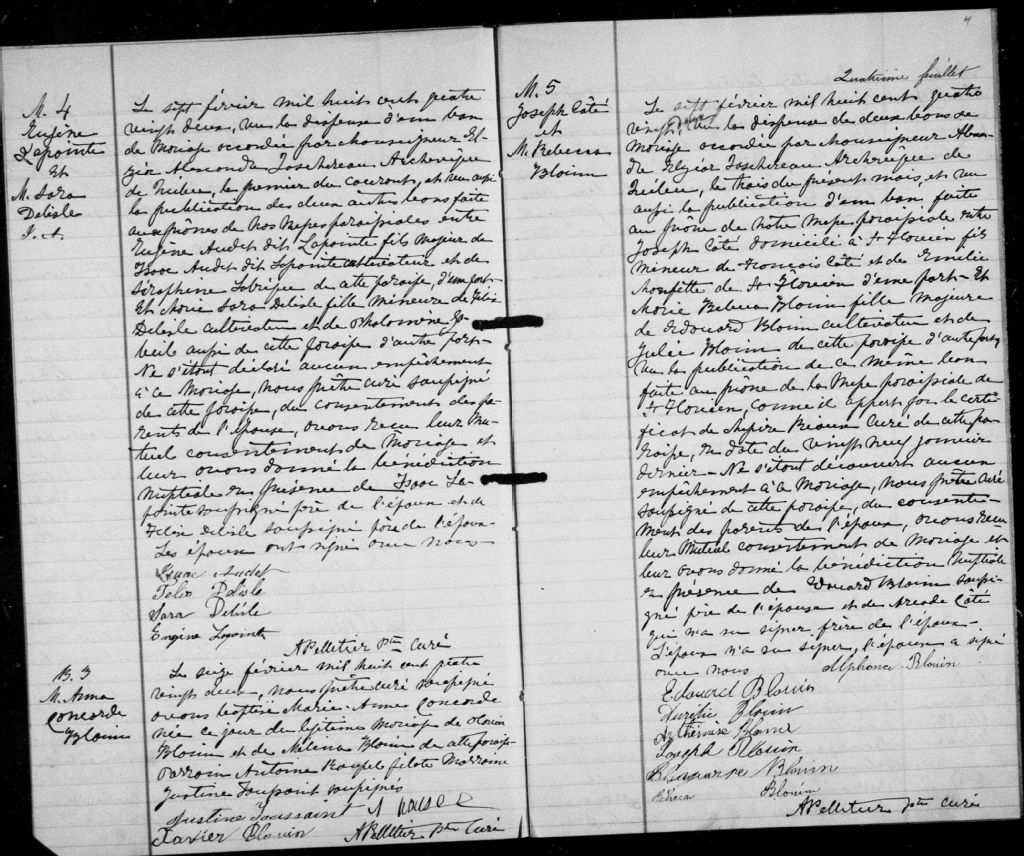 M. 4
Eugène
Lapointe
Et
M. Sara
Delisle
Le sept février mil huit cent quatre
vingt deux, vu la dispense d'un ban
de Mariage accordée par Monseigneur El-
zéar Alexandre Taschereau Archevêque
de Québec, le premier du courant, et vu aussi
la publication des deux autres bans faite
aux prônes de nos Messes paroissiales entre
Eugène Audet dit Lapointe fils Majeur de
Isaac Audet dit Lapointe cultivateur et de
Séraphine de cette paroisse, d'une part-
Et Marie Sara Delisle fille Mineure de Félix
Delisle cultivateur et de Philomène
aussi de cette paroisse d'autre part-
Ne s'étant déclaré aucun empêchement
à ce Mariage, nous prêtre curé soussigné
de cette paroisse, du consentement des pa-
rents de l'épouse, avons reçu leur Mu-
tuel consentement de Mariage et
leur avons donné la bénédiction
Nuptiale en présence de Isaac La-
pointe soussigné père de l'époux et de
Félix Delisle soussigné père de l'épouse-
Les époux ont signé avec nous-
Isaac Audet
Félix Delisle
Sara Delisle
Eugène Lapointe
A Pelletier Ptre Curé
B. 3
M. Anna
Concorde
Blouin
Le seize février mil huit cent quatre
vingt deux, nous prêtre curé soussigné
avons baptisé Marie-Anne Concorde
née ce jour du légitime mariage de
Blouin et de Blouin de cette paroisse
Parrain Antoine pilote Marraine
Justine Toussaint soussignés
Justine Toussaint
Blouin A Pelletier Ptre Curé
4
Quatrième feuillet
M. 5
Joseph Côté
et
M. Rebecca
Blouin
Le sept février mil huit cent quatre
vingt deux, vu la dispense de deux bans de
Mariage accordée par Monseigneur Alexan-
dre Elzéar Taschereau Archevêque de
Québec, le trois du présent mois, et vu
aussi la publication d'un ban, faite
au prône de notre Messe paroissiale entre
Joseph Côté domicilié à St Flavien fils
Mineur de François Côté et de Emilie
de St Flavien d'une part- Et
Marie Rebecca Blouin fille Majeure
de Edouard Blouin cultivateur et de
Julie Blouin de cette paroisse d'autre part,
vu la publication de ce même ban
faite au prône de la Messe paroissiale de
St Flavien, comme il appert par le certi-
ficat de Messire Curé de cette pa-
roisse, en date du vingt neuf janvier
dernier- Ne s'étant découvert aucun
empêchement à ce Mariage, nous prêtre curé
soussigné de cette paroisse, du consente-
ment des parents de l'époux, avons reçu
leur Mutuel consentement de Mariage et
leur avons donné la bénédiction Nuptiale
en présence de Edouard Blouin soussi-
gné père de l'épouse et de Arcade Côté
qui n'a su signer, frère de l'époux-
L'époux n'a su signer, l'épouse a signé
avec nous Alphonse Blouin
Edouard Blouin
Blouin
Blouin
Joseph Blouin
Blouin
Blouin
A Pelletier Ptre Curé